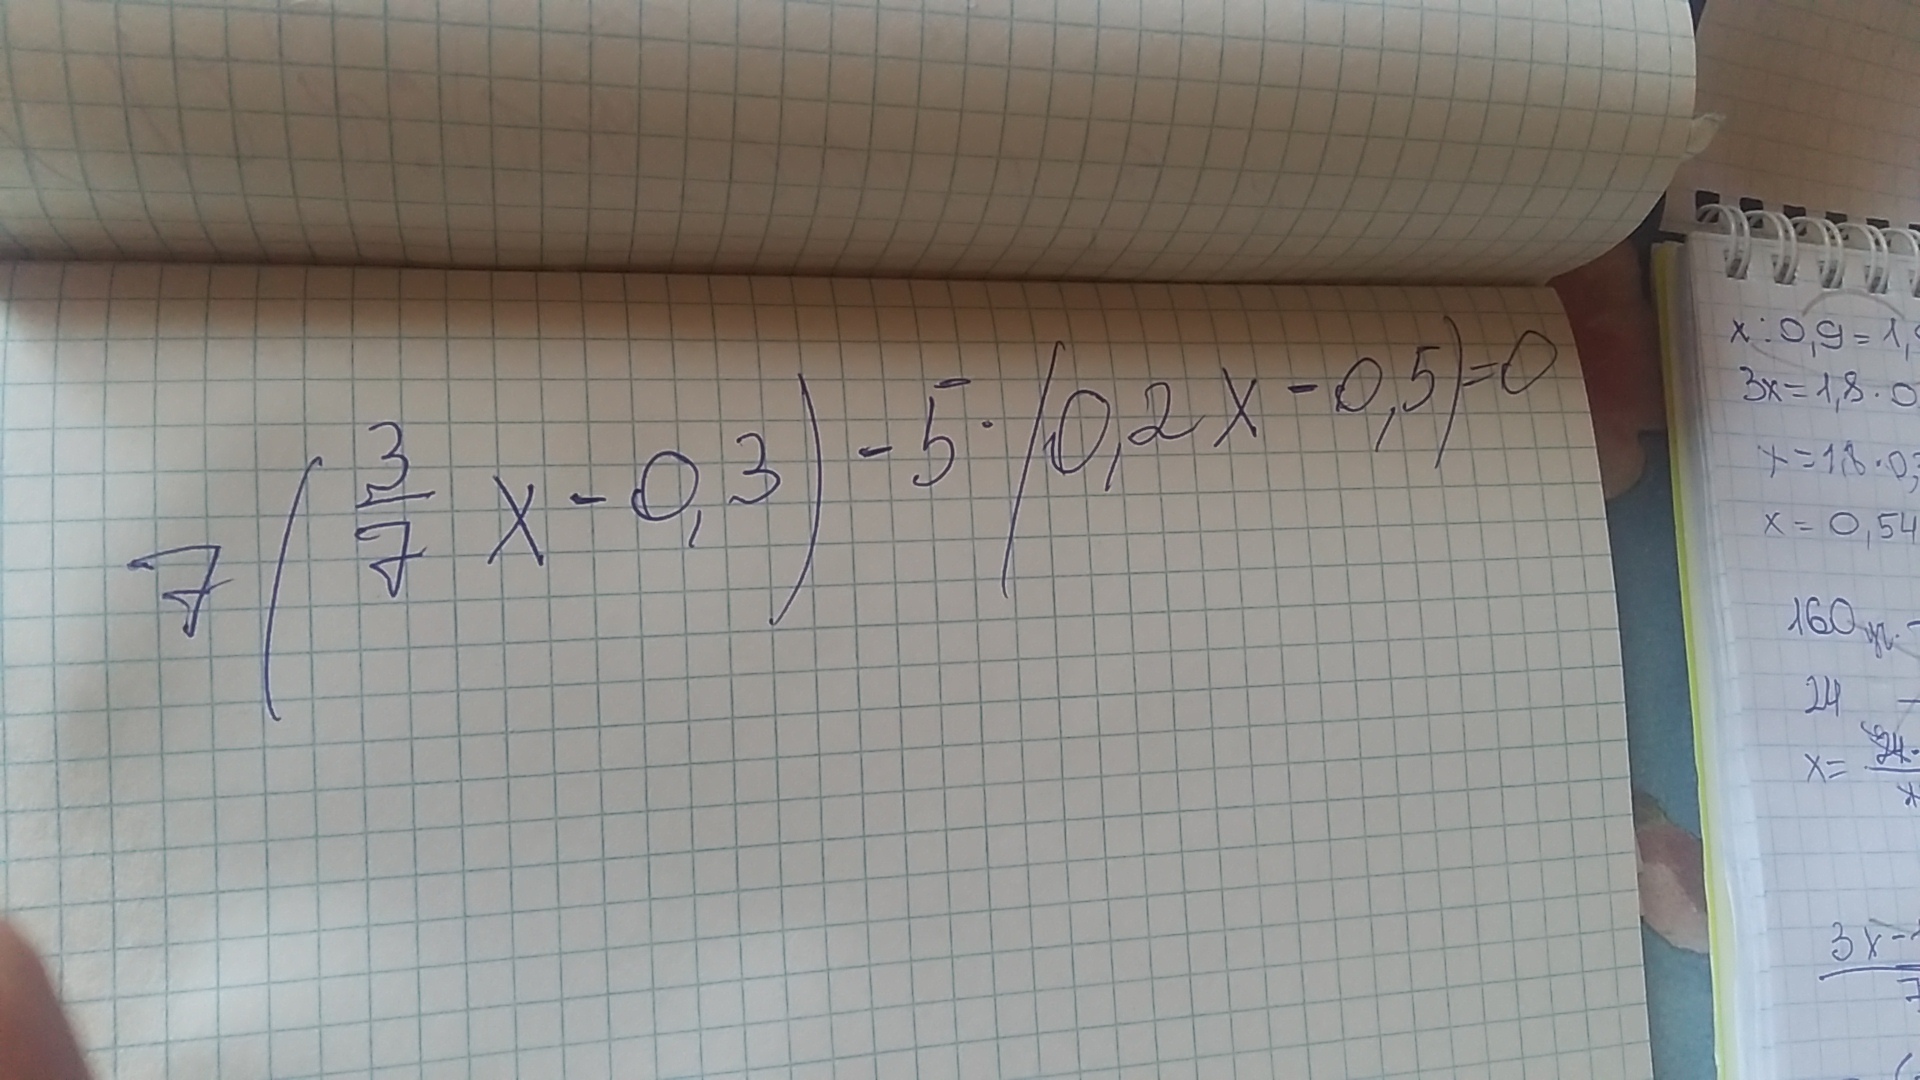 7(3/7 x - 0,3) - 5 · (0,2x - 0,5) = 0
x : 0,9 = 1,
3x = 1,8 · 0
x = 1,8 · 0,3
x = 0,54
160
24
x = 24 ·
3x -
7